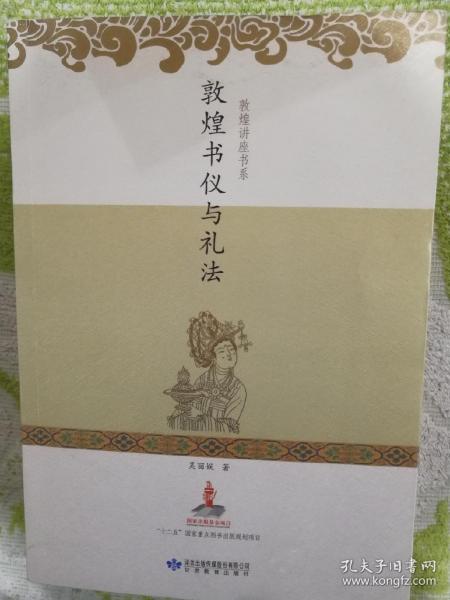 敦煌讲座书系
敦煌书仪与礼法
吴丽娱 著
国家出版基金项目
“十二五”国家重点图书出版规划项目
读者出版传媒股份有限公司
甘肃教育出版社
孔夫子旧书网